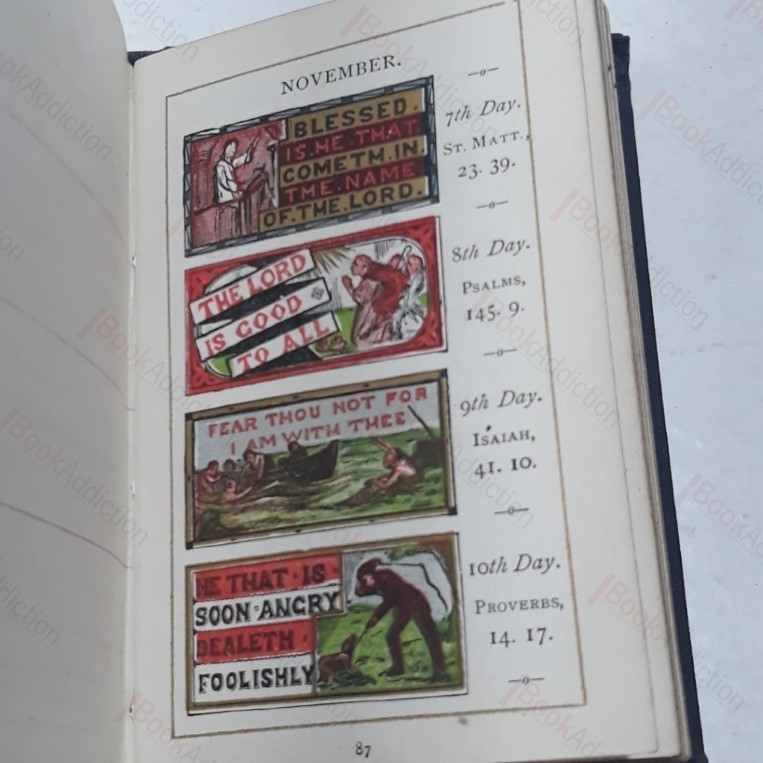 NOVEMBER.
BLESSED.
IS.HE.THAT
COMETH.IN.
THE.NAME
OF.THE.LORD.
7th Day.
ST. MATT.,
23. 39.
THE LORD
IS GOOD
TO ALL
8th Day.
PSALMS,
145. 9.
FEAR THOU NOT FOR
I AM WITH THEE
9th Day.
ISAIAH,
41. 10.
HE THAT · IS
SOON ANGRY
DEALETH ·
FOOLISHLY
10th Day.
PROVERBS,
14. 17.
87
BookAddiction